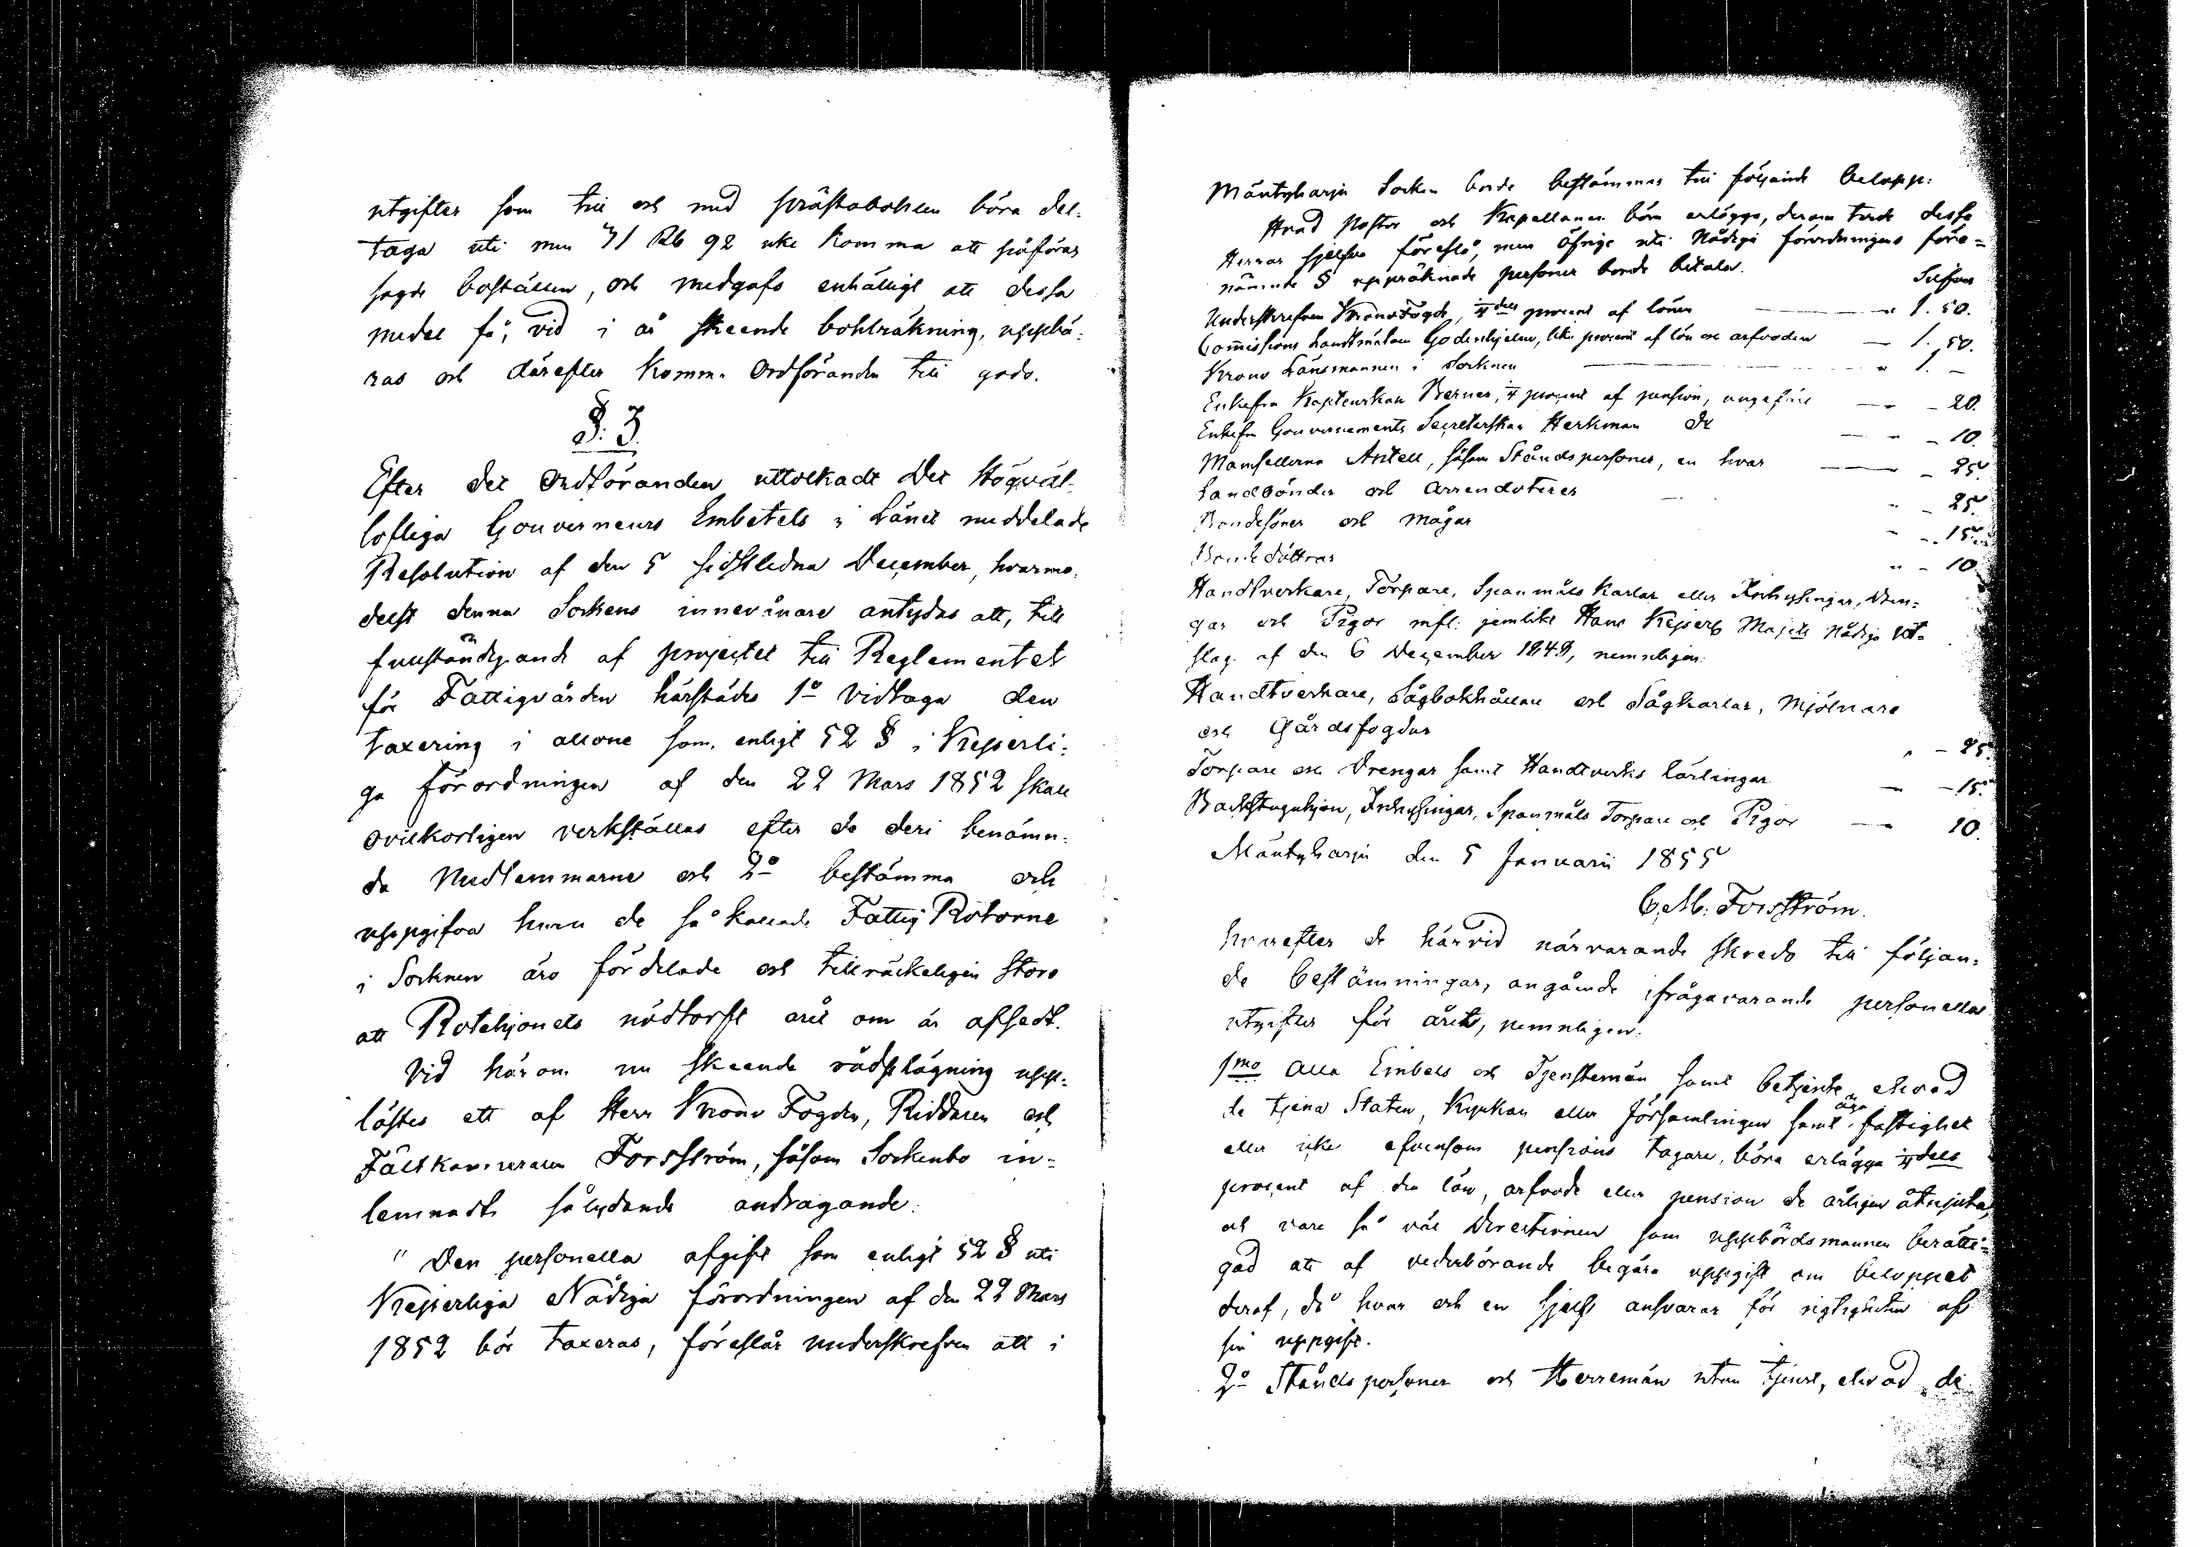 utgifter som till och med prästabohlen böra del-
taga uti men 71 Rb 92 icke komma att påföras
sagde boställen, och medgafs enhälligt att dessa
medel få, vid i år skeende bohlräkning, uppbä-
ras och därefter komma Ordföranden till godo.
§. 3.
Efter det Ordföranden uttolkadt Det Högväl-
lofliga Gouverneurs Embetets i Länet meddelade
Resolution af den 5 sidstledna December, hvarme-
delst denna Sockens innevånare antydas att, till
fullständigande af projectet till Reglementet
för Fattigvården härstädes 1o vidtaga den
taxering i allone som, enligt 52 § i Kejserli-
ga förordningen af den 22 Mars 1852 skall
ovilkorligen verkställas efter de deri benämn-
da Medlemmarne och 2o bestämma och
uppgifva huru de så kallade Fattig Rotorne
i Socknen äro fördelade och tillräckeligen stora
att Rotehjonets nödtorft året om är afsedt.
Vid härom nu skeende rådplägning upp-
lästes ett af Herr Krono Fogden, Riddaren och
Fältkamreraren Forsström, såsom Sockenbo in-
lemnadt sålydande andragande:
" Den personella afgift som enligt 52 § uti
Kejserliga Nådiga förordningen af den 22 Mars
1852 bör taxeras, föreslår underskrefven att i
Mäntyharju Socken borde bestämmas till följande belopp:
Hvad Pastor och Kapellanen böra erlägga, derom torde dessa
Herrar sjelfva föreslå, men öfrige uti Nådiga förordningens före-
nämnde § uppräknade personer borde betala.
Silfver
Underskrefven KronoFogde, 1/4dels procent af lönen " 1. 50.
Commissions Landtmätaren Godenhjelm, lika procent af lön och arfvoden — 1. 50.
Krono Länsmannen i Socknen " 1. —
Enkefru Kaptenskan Berner, 1/4 procent af pension, ungefär — - 20.
Enkefru Gouvernements Secreterskan Herkman do — " - 10.
Mamsellerna Antell, såsom Ståndspersoner, en hvar — - 25.
Landbönder och Arrendatorer " - 25.
Bondesöner och Mågar " - 15.
Bondedöttrar " - 10.
Handtverkare, Torpare, Spanmåls karlar eller Inhysingar, Dren-
gar och Pigor mfl: jemlikt Hans Kejserl Majts Nådiga ut-
slag af den 6 December 1848, nemneligen:
Handtverkare, Sågbokhållare och Sågkarlar, Mjölnare
och Gårdsfogdar " - 25.
Torpare och Drengar samt Handtverks lärlingar — - 15.
Backstuguhjon, Inhysingar, Spanmåls Torpare och Pigor — 10.
Mäntyharju den 5 Januarii 1855
C. M. Forsström.
hvarefter de härvid närvarande skredo till följan-
de bestämningar, angående ifrågavarande personella
utgifter för året, nemneligen:
1mo Alla Embets och Tjenstemän samt betjente, ehvad
de tjena Staten, Kyrkan eller församlingen samt äga fastighet
eller icke äfvensom pensions tagare, böra erlägga 1/4dels
procent af den lön, arfvode eller pension de årligen åtnjuta,
och vare så väl Directionen som uppbördsmannen berätti-
gad att af vederbörande begära uppgift om beloppet
deraf, då hvar och en sjelf ansvarar för rigtigheten af
sin uppgift.
2o Ståndspersoner och Herremän utan tjenst, ehvad de